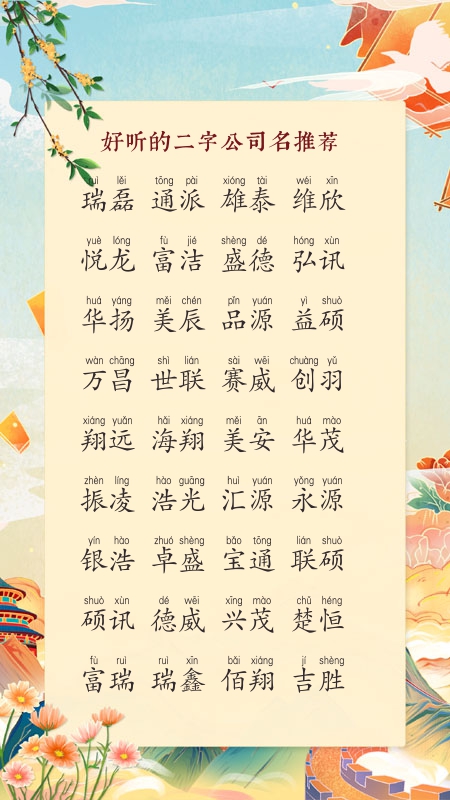 好听的二字公司名推荐
ruì lěi tōng pài xióng tài wéi xīn
瑞磊 通派 雄泰 维欣
yuè lóng fù jié shèng dé hóng xùn
悦龙 富洁 盛德 弘讯
huá yáng měi chén pǐn yuán yì shuò
华扬 美辰 品源 益硕
wàn chāng shì lián sài wēi chuàng yǔ
万昌 世联 赛威 创羽
xiáng yuǎn hǎi xiáng měi ān huá mào
翔远 海翔 美安 华茂
zhèn líng hào guāng huì yuán yǒng yuán
振凌 浩光 汇源 永源
yín hào zhuó shèng bǎo tōng lián shuò
银浩 卓盛 宝通 联硕
shuò xùn dé wēi xīng mào chǔ héng
硕讯 德威 兴茂 楚恒
fù ruì ruì xīn bǎi xiáng jí shèng
富瑞 瑞鑫 佰翔 吉胜